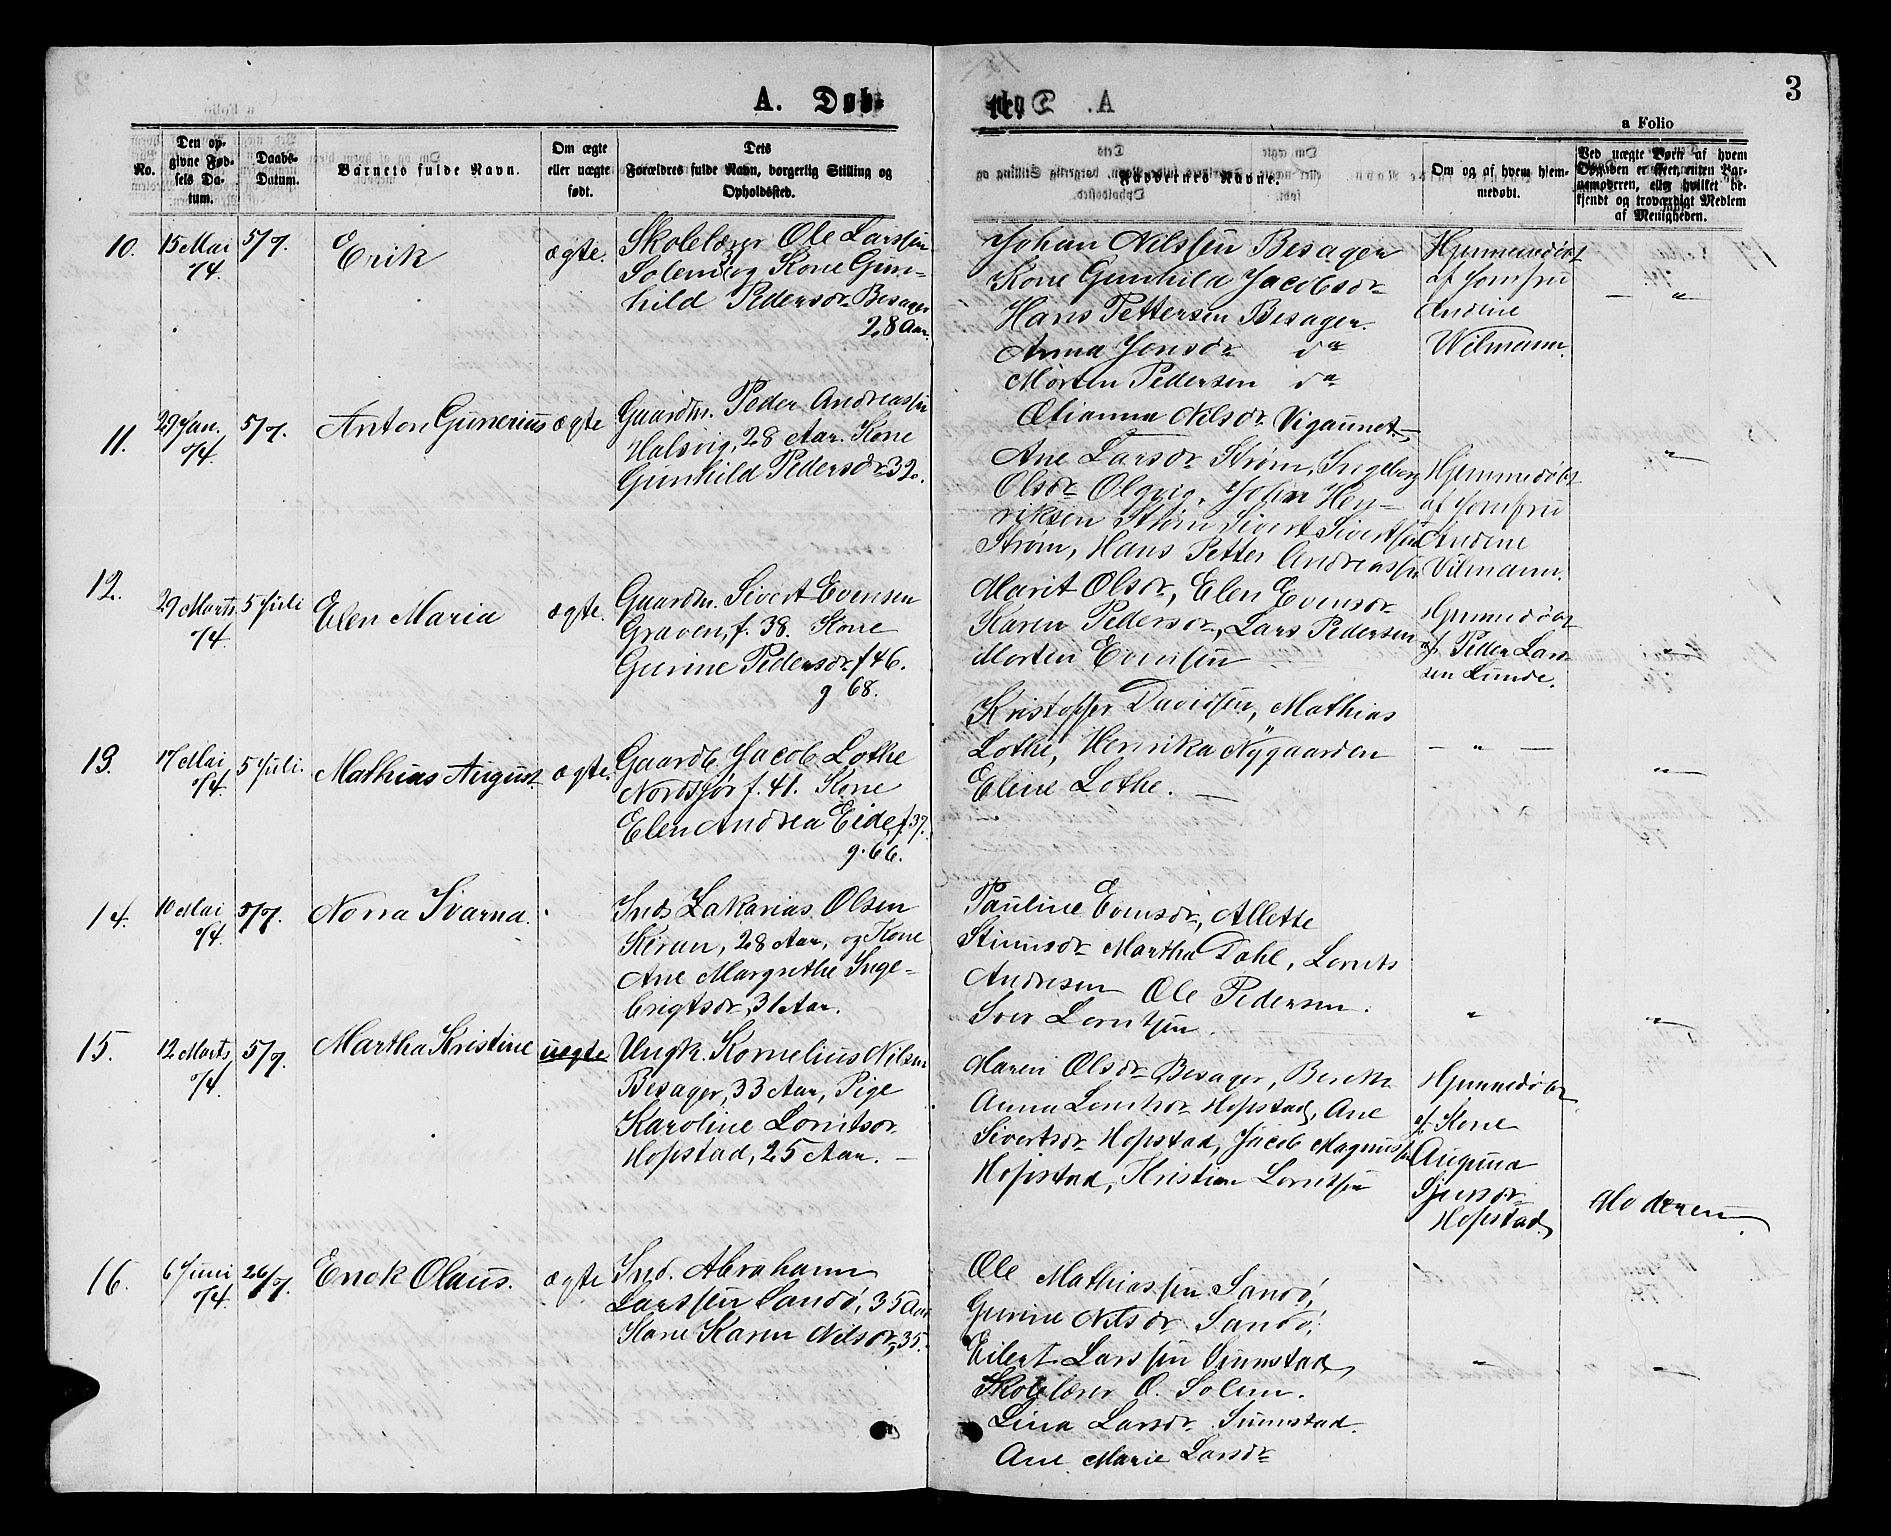 A. Døb-
te.
3
a Folio
No.
Den op-
givne Fød-
sels Da-
tum.
Daabs-
Datum.
Barnets fulde Navn.
Om ægte
eller uægte
født.
Dets
Forældres fulde Navn, borgerlig Stilling og
Opholdssted.
Faddernes Navne.
Om og af hvem hjem-
medøbt.
Ved uægte Børn af hvem
Opgaven er skeet, enten Bar-
nemoderen, eller hvilket be-
kjendt og troværdigt Medlem
af Menigheden.
10.
15 Mai
/74.
5/7.
Erik
ægte.
Skolelærer Ole Larssen
Solem og Kone Gun-
hild Pedersdr Besager
28 Aar.
Johan Nilssen Besager
Kone Gunhild Jacobsdr
Hans Pettersen Besager.
Anna Jonsdr do
Morten Pedersen do
Ælianna Nilsdr Vigaunet
Hjemmedøbt
af Jomfru
Andine
Wilmann.
— " —
11.
29 Jan.
/74.
5/7.
Anton Gunerius
ægte
Gaardm. Peder Andreassen
Halsvig, 28 Aar. Kone
Gunhild Pedersdr 32.
Ane Larsdr Strøm, Ingeborg
Olsdr Olqvig, John Hen-
riksen Strøm Sivert Sivertsen
Strøm, Hans Petter Andreassen
Hjemmedøbt
af Jomfru
Andine
Vilmann.
"
12.
29 Marts
/74.
5 Juli
Elen Maria
ægte.
Gaardm. Sivert Evensen
Graven, f. 38. Kone
Gurine Pedersdr f 46.
g 68.
Marit Olsdr, Elen Evensdr
Karen Pedersdr, Lars Pedersen
Morten Evensen
Hjemmedøbt
af Peder Lar-
sen Lunde.
"
13.
17 Mai
/74.
5 Juli.
Mathias August
ægte.
Gaardb. Jacob Lothe
Nordsjør f. 41. Kone
Elen Andrea Eide f. 37.
g. 66.
Kristoffer Davidsen, Mathias
Lothe, Henrika Nygaarden
Eline Lothe. —
— " —
"
14.
10 Mai
/74.
5/7.
Nona Ivarna.
"
Inds Zakarias Olsen
Kiran, 28 Aar, og Kone
Ane Margrethe Inge-
brigtsdr, 31 Aar.
Pauline Evensdr, Allette
Stinusdr Martha Dahl, Lorents
Andresen Ole Pedersen.
Iver Lorentsen.
"
"
15.
12 Marts
/74.
5/7.
Martha Kristine
uægte
Ungk. Kornelius Nilsen
Besager, 33 Aar, Pige
Karoline Lorntsdr
Hopstad, 25 Aar. —
Maren Olsdr Besager, Bereth
Anna Lorntsdr Hopstad, Ane
Sivertsdr Hopstad, Jacob Magnussen
Hopstad, Kristian Lorntsen
Hjemmedøbt
af Kone
Anguna
Hopstad,
Moderen
16.
6 Juni
/74.
26/7.
Enok Olaus.
ægte
Ind. Abraham
Larssen Sandø, 35 Aar
Kone Karen Nilsdr, 35.
Ole Mathiassen Sandø,
Gurine Nilsdr Sandø,
Eilert Larssen Sumstad,
Skolelærer O. Solem.
Lina Larsdr Sumstad.
Ane Marie Larsdr
"
"